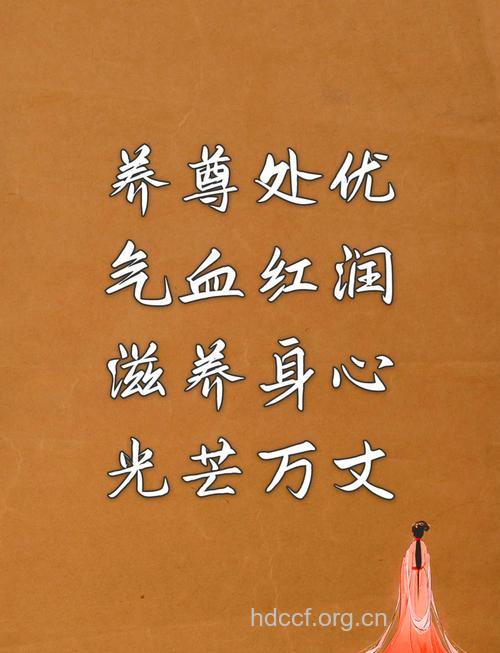 养尊处优
气血红润
滋养身心
光芒万丈
hdccf.org.cn